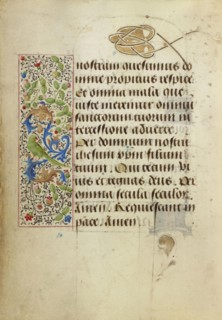 nostram quesumus do
mine propitius respice
Et omnia mala que
iuste meremur omniu
sanctorum tuorum in
tercessione aduerte
Per dominum nostru
ihesum xpm filium
tuum. Qui tecum vi
uit et regnat deus. Per
omnia secula seculor
Amen. Requiescant in
pace. Amen